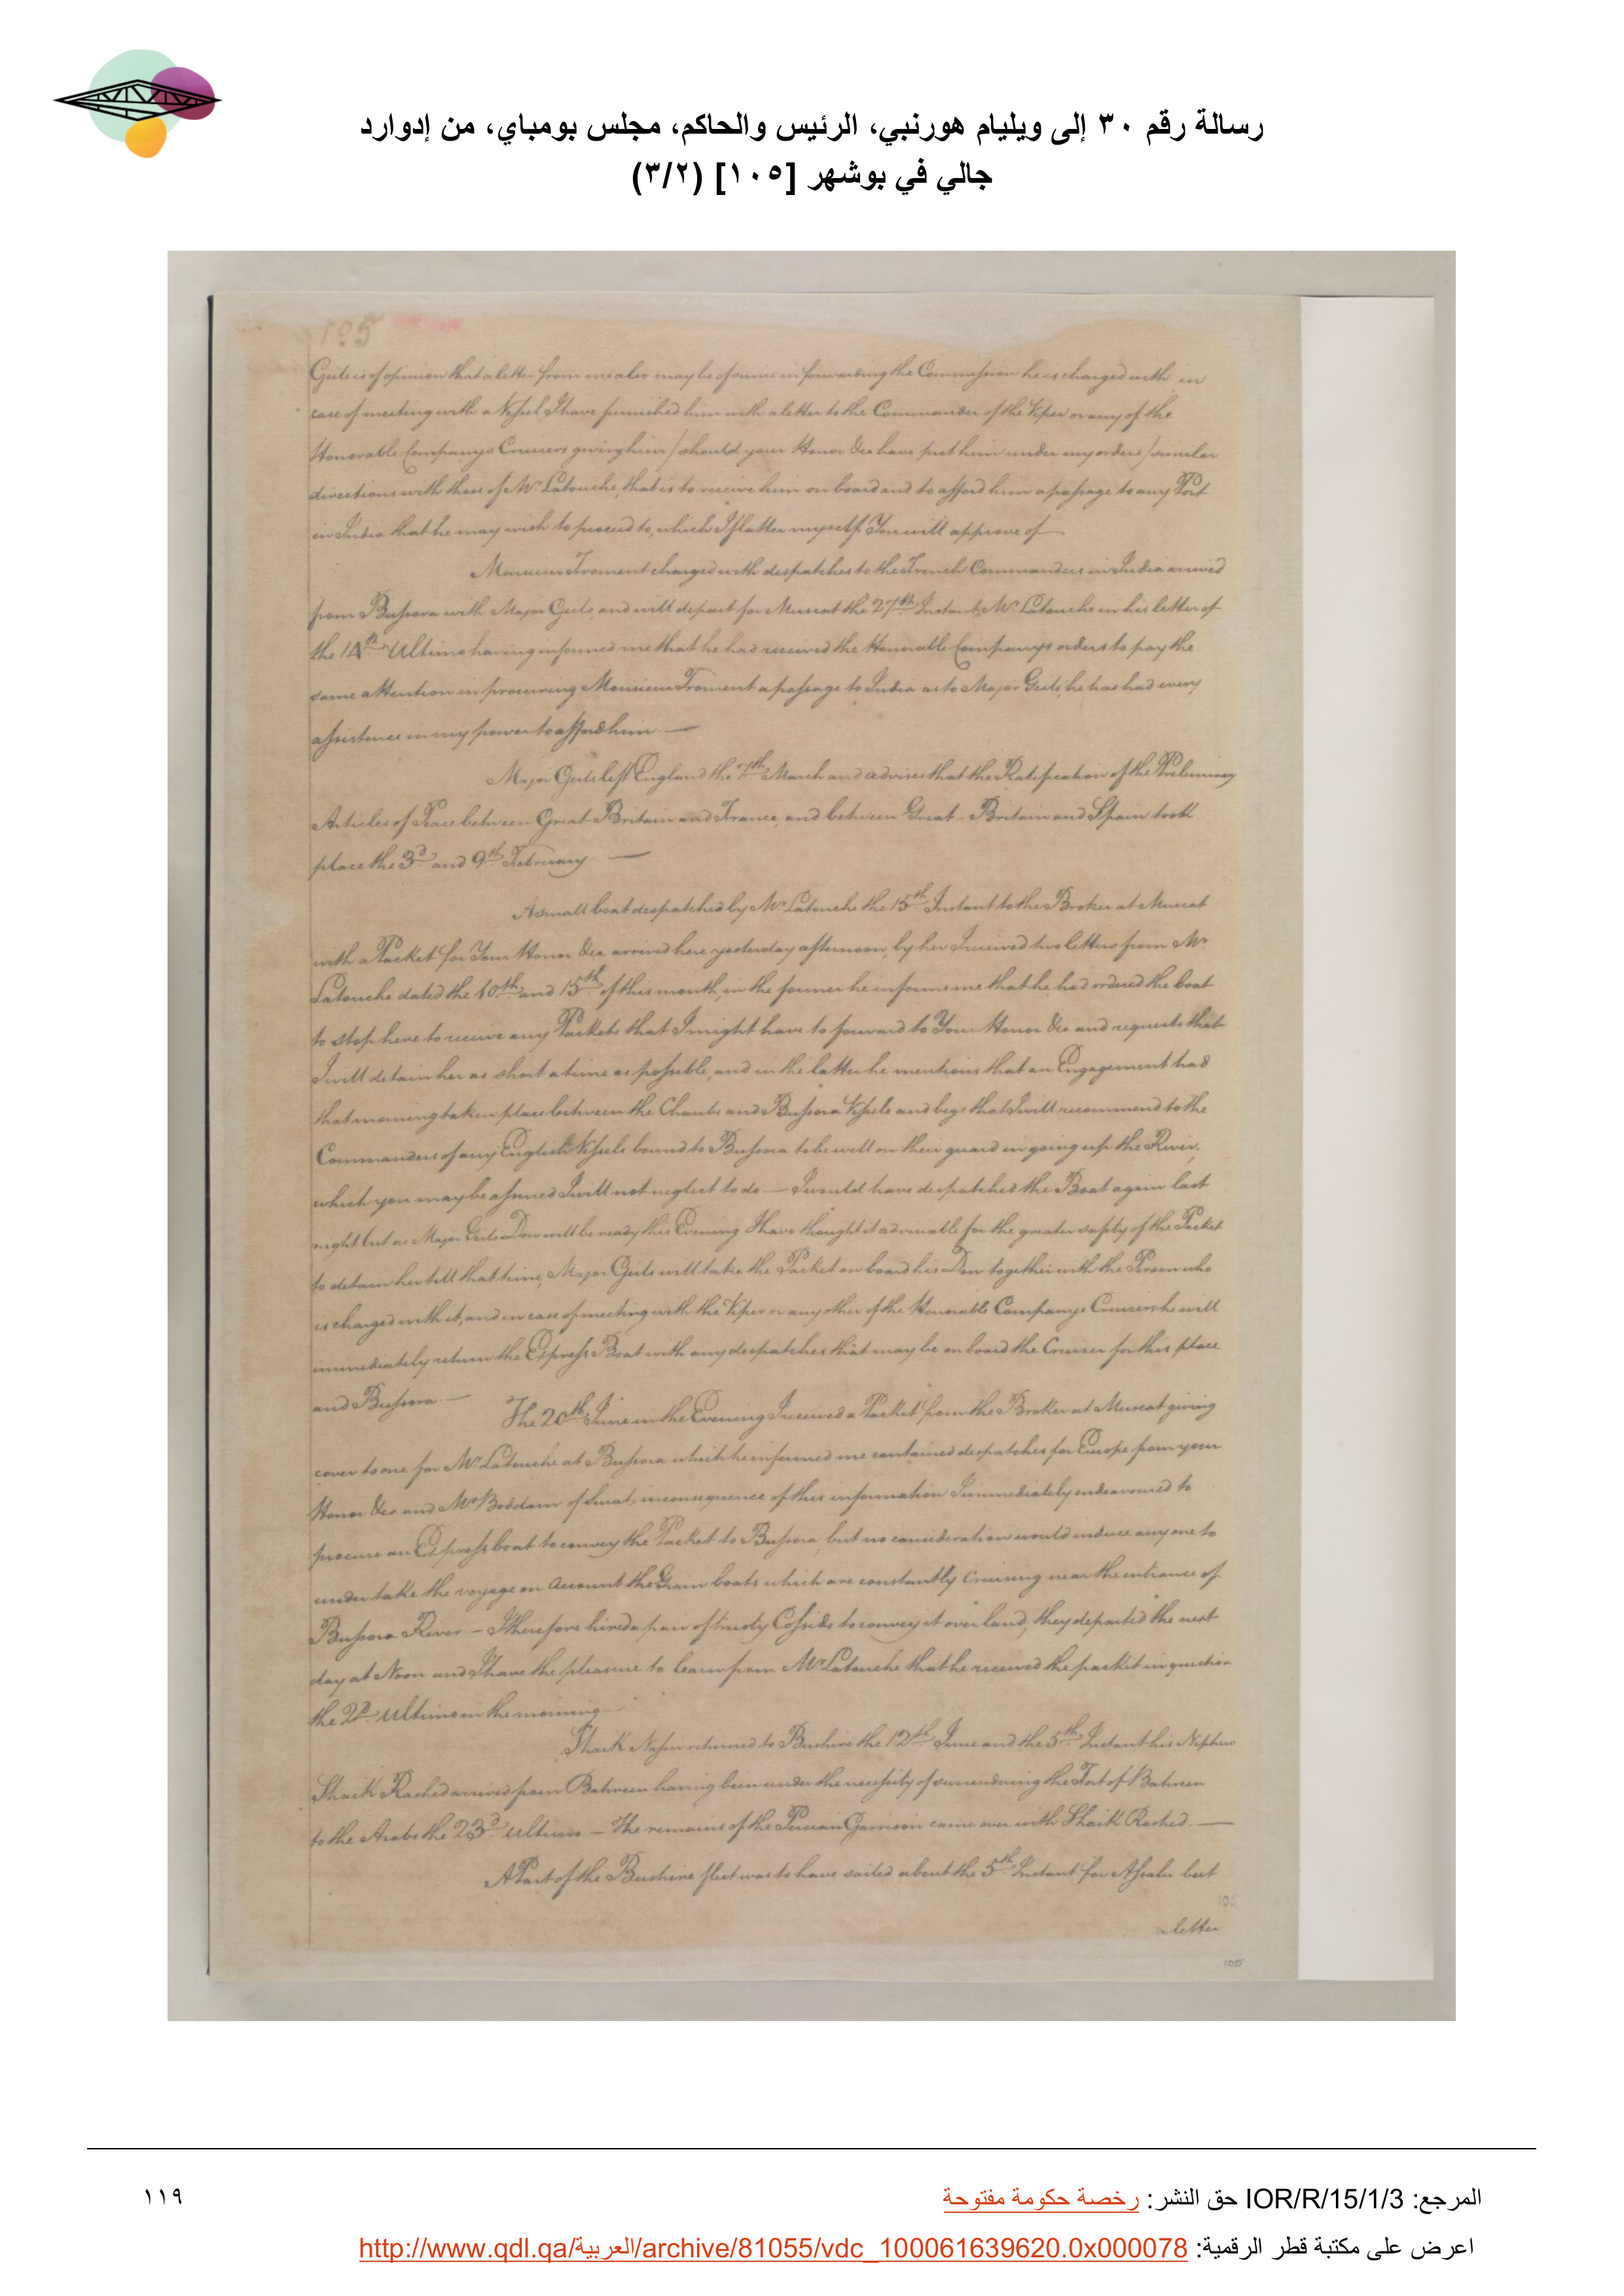 رسالة رقم ٣٠ إلى ويليام هورنبي، الرئيس والحاكم، مجلس بومباي، من إدوارد
جالي في بوشهر [١٠٥] (٣/٢)
105
Geils is of opinion that a letter from me also may be of service in forwarding the Commission he is charged with in
case of meeting with a Vessel I have furnished him with a letter to the Commander of the Viper or any of the
Honorable Companys Cruisers giving him / should your Honor &ca have put him under my orders / similar
directions with those of Mr Latouche, that is to receive him on board and to afford him a passage to any Port
in India that he may wish to proceed to, which I flatter myself You will approve of —
Monsieur Froment charged with despatches to the French Commanders in India arrived
from Bussora with Major Geils, and will depart for Muscat the 27th Instant, Mr Latouche in his letter of
the 14th Ultimo having informed me that he had received the Honorable Companys orders to pay the
same attention in procuring Monsieur Froment a passage to India as to Major Geils, he has had every
assistence in my power to afford him —
Major Geils left England the 7th March and advises that the Ratification of the Preliminary
Articles of Peace between Great Britain and France, and between Great Britain and Spain took
place the 3d and 9th February —
A small boat despatched by Mr Latouche the 15th Instant to the Broker at Muscat
with a Packet for Your Honor &ca arrived here yesterday afternoon, by her I received two letters from Mr
Latouche dated the 10th and 15th of this month, in the former he informs me that he had ordered the boat
to stop here to receive any Packets that I might have to forward to Your Honor &ca and requests that
I will detain her as short a time as possible, and in the latter he mentions that an Engagement had
that morning taken place between the Chaubs and Bussora Vessels and begs that I will recommend to the
Commanders of any English Vessels bound to Bussora to be well on their guard in going up the River,
which you may be assured I will not neglect to do — I would have despatched the Boat again last
night but as Major Geils Dow will be ready this Evening I have thought it adviseable for the greater safety of the Packet
to detain her till that time, Major Geils will take the Packet on board his Dow together with the Person who
is charged with it, and in case of meeting with the Viper or any other of the Honorable Companys Cruisers he will
immediately return the Express Boat with any despatches that may be on board the Cruiser for this place
and Bussora —
The 20th June in the Evening I received a Packet from the Broker at Muscat giving
cover to one for Mr Latouche at Bussora which he informed me contained despatches for Europe from your
Honor &ca and Mr Boddam of Surat, in consequence of this information I immediately endeavoured to
procure an Express boat to convey the Packet to Bussora, but no consideration would induce any one to
under take the voyage on Account the Grain boats which are constantly Cruising near the entrance of
Bussora River — I therefore hired a pair of trusty Cossids to convey it over land, they departed the next
day at Noon and I have the pleasure to learn from Mr Latouche that he received the packet in question
the 2d Ultimo in the morning —
Shaik Nassir returned to Bushire the 12th June and the 5th Instant his Nephew
Shaik Rashed arrived from Bahreen having been under the necessity of surrendering the Fort of Bahreen
to the Arabs the 23d Ultimo — The remains of the Persian Garrison came over with Shaik Rashed. —
A Part of the Bushire fleet was to have sailed about the 5th Instant for Assalu but
105
letter
105
المرجع: IOR/R/15/1/3 حق النشر: رخصة حكومة مفتوحة
١١٩
اعرض على مكتبة قطر الرقمية: http://www.qdl.qa/العربية/archive/81055/vdc_100061639620.0x000078